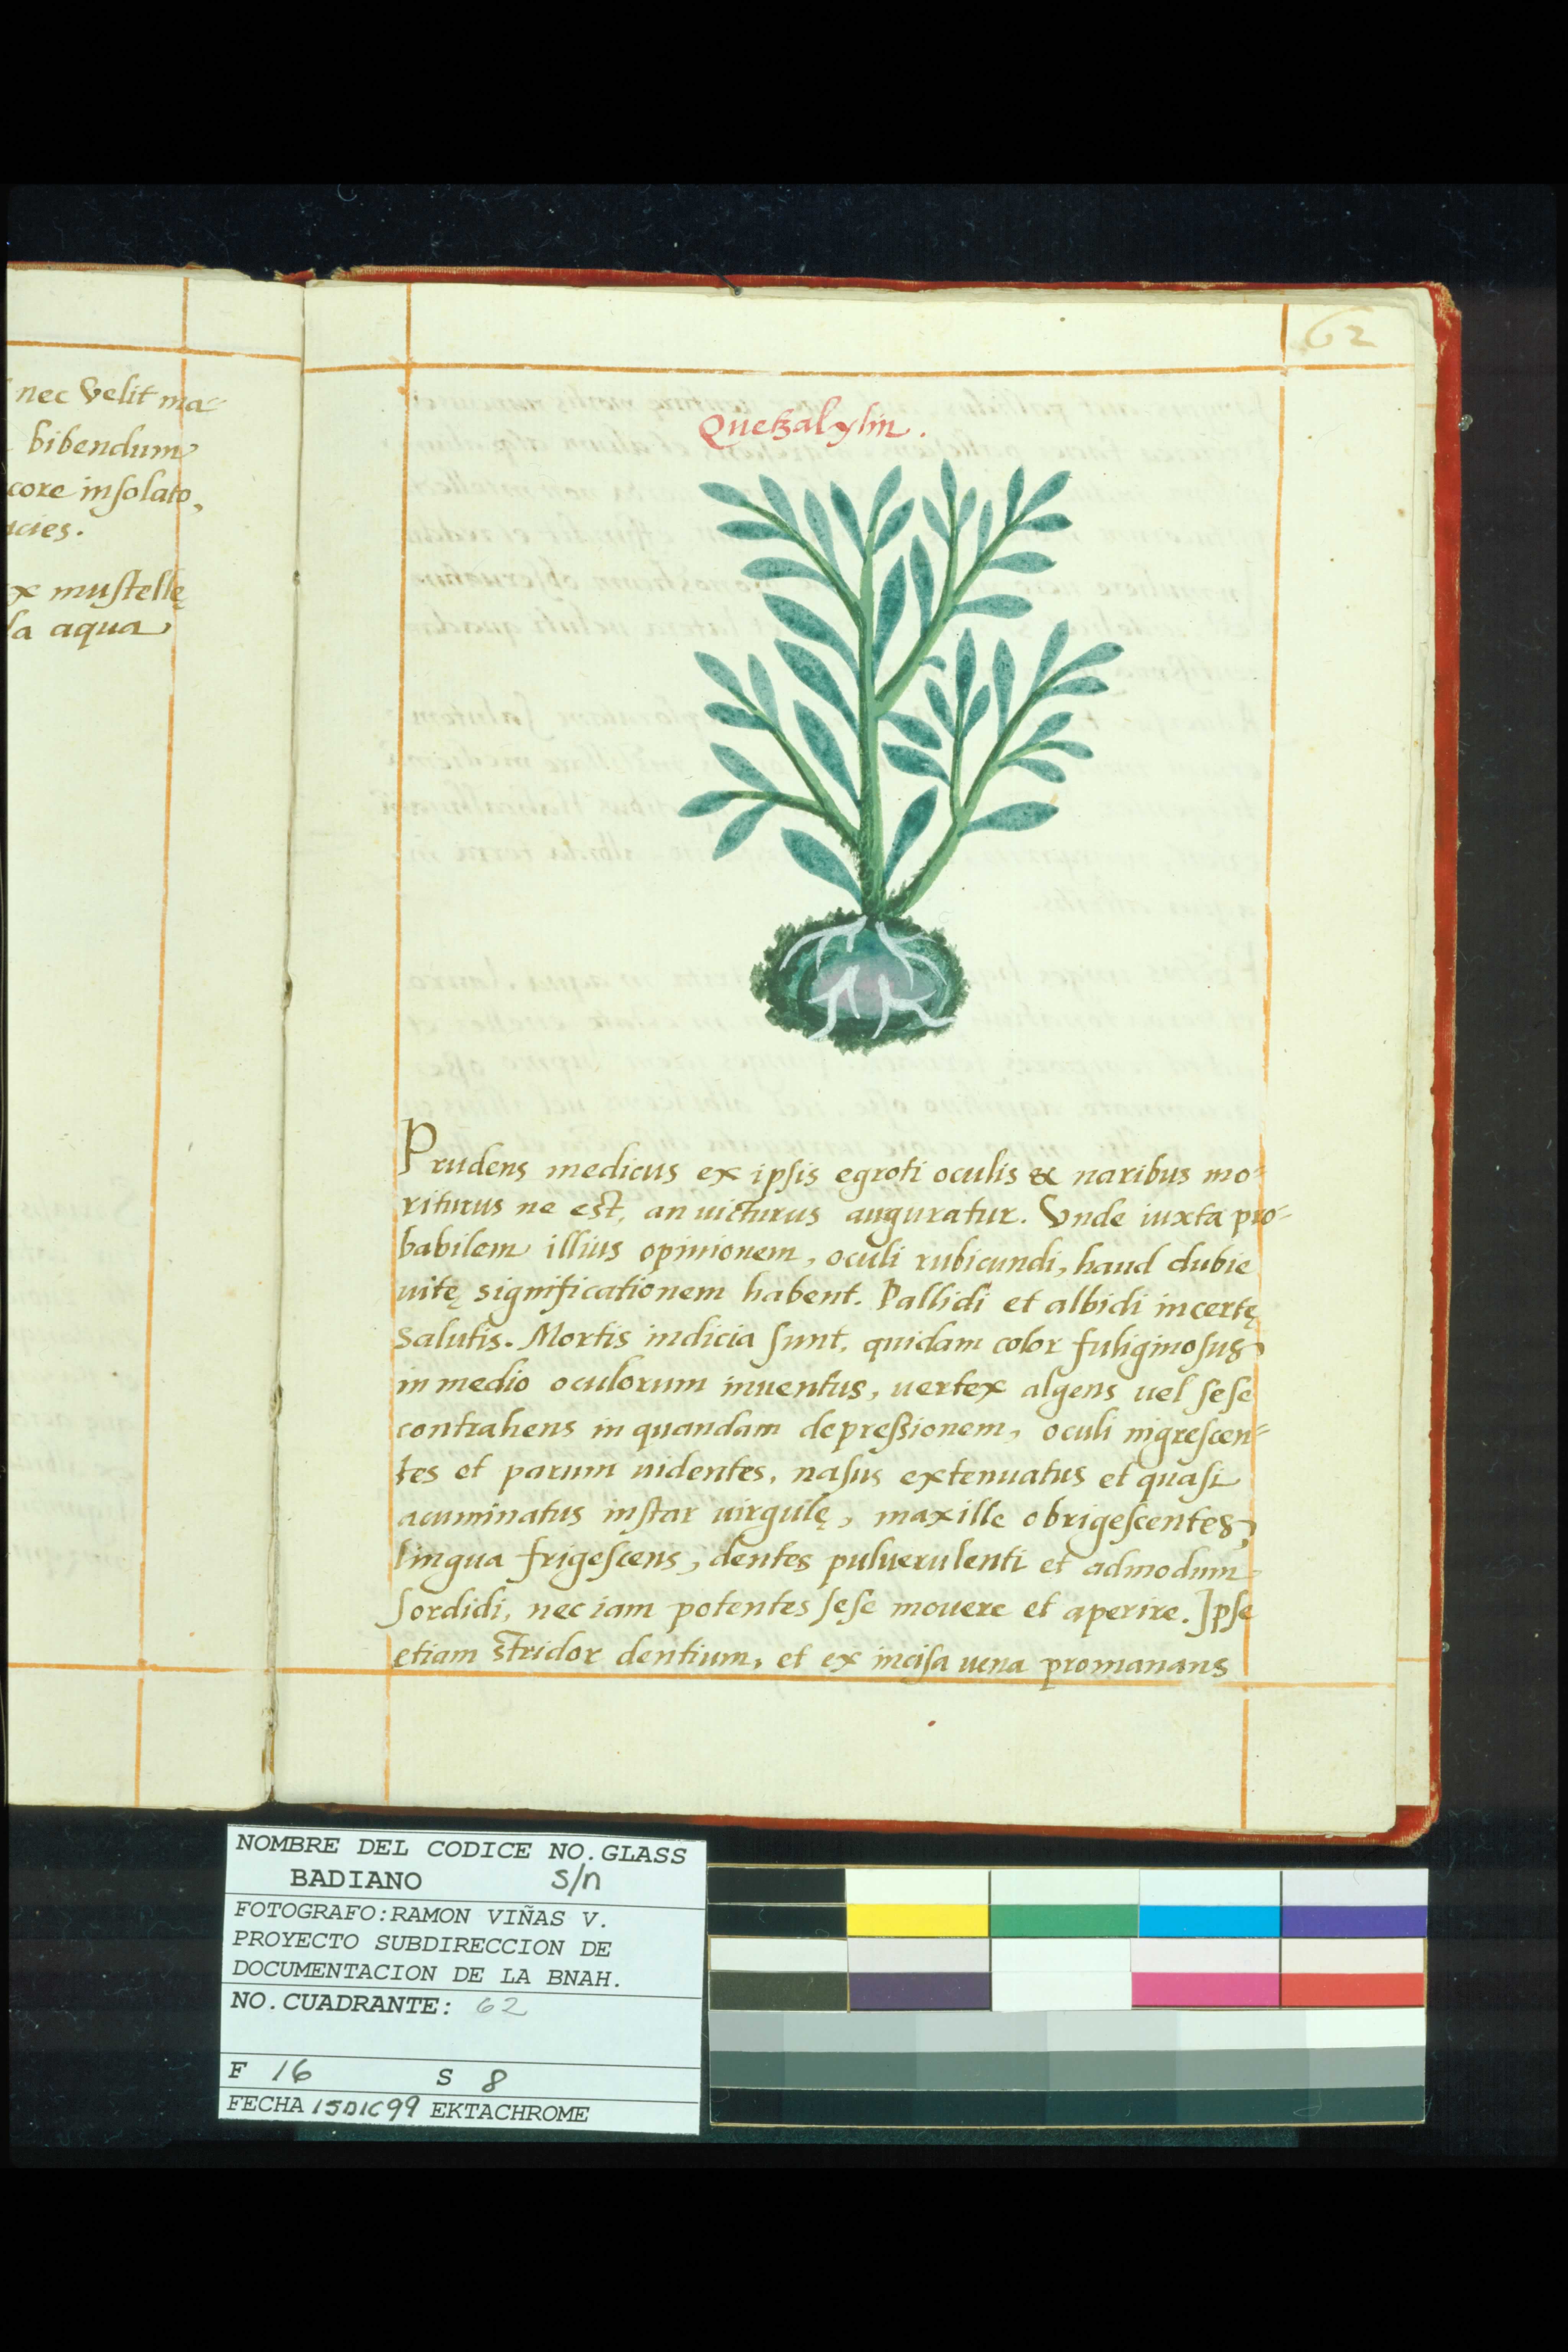 nec velit ma-
bibendum
core insolato,
acies.
ex mustellę
la aqua
62
Quetzalylin.
Prudens medicus ex ipsis egroti oculis & naribus mo-
riturus ne est, an uicturus auguratur. Vnde iuxta pro-
babilem illius opinionem, oculi rubicundi, haud dubie
uitę significationem habent. Pallidi et albidi incertę
salutis. Mortis indicia sunt, quidam color fuliginosus
in medio oculorum inuentus, uertex algens uel sese
contrahens in quandam depreßionem, oculi nigrescen-
tes et parum uidentes, nasus extenuatus et quasi
acuminatus instar uirgulę, maxille obrigescentes,
lingua frigescens, dentes puluerulenti et admodum
sordidi, nec iam potentes sese mouere et aperire. Ipse
etiam stridor dentium, et ex incisa uena promanans
NOMBRE DEL CODICE NO.GLASS
BADIANO S/n
FOTOGRAFO:RAMON VIÑAS V.
PROYECTO SUBDIRECCION DE
DOCUMENTACION DE LA BNAH.
NO.CUADRANTE: 62
F 16 S 8
FECHA 15DIC99 EKTACHROME